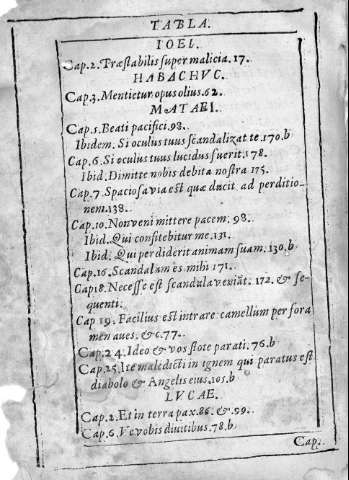 TABLA.
IOEL.
Cap.2. Præstabilis super malicia.17.
HABACHVC.
Cap.3. Mentietur opus oliuę.62.
MATÆI.
Cap.5. Beati pacifici.98.
Ibidem. Si oculus tuus scandalizat te.170.b
Cap.6. Si oculus tuus lucidus fuerit.178.
Ibid. Dimitte nobis debita nostra 175.
Cap.7. Spaciosa via est quæ ducit ad perditio-
nem.138.
Cap.10. Non veni mittere pacem. 98.
Ibid. Qui confitebitur me.131.
Ibid. Qui perdiderit animam suam. 130.b
Cap.16. Scandalam es mihi 171.
Cap 18. Necesse est scandula veniāt. 172. & se-
quenti.
Cap 19. Facilius est intrare camellum per fora
men aues. &c.77.
Cap.24. Ideo & vos stote parati. 76.b
Cap.25. Ite maledicti in ignem qui paratus est
diabolo & Angelis eius.105.b
LVCAE.
Cap.2. Et in terra pax.86. & 99.
Cap.6. Ve vobis diuitibus.78.b
Cap.